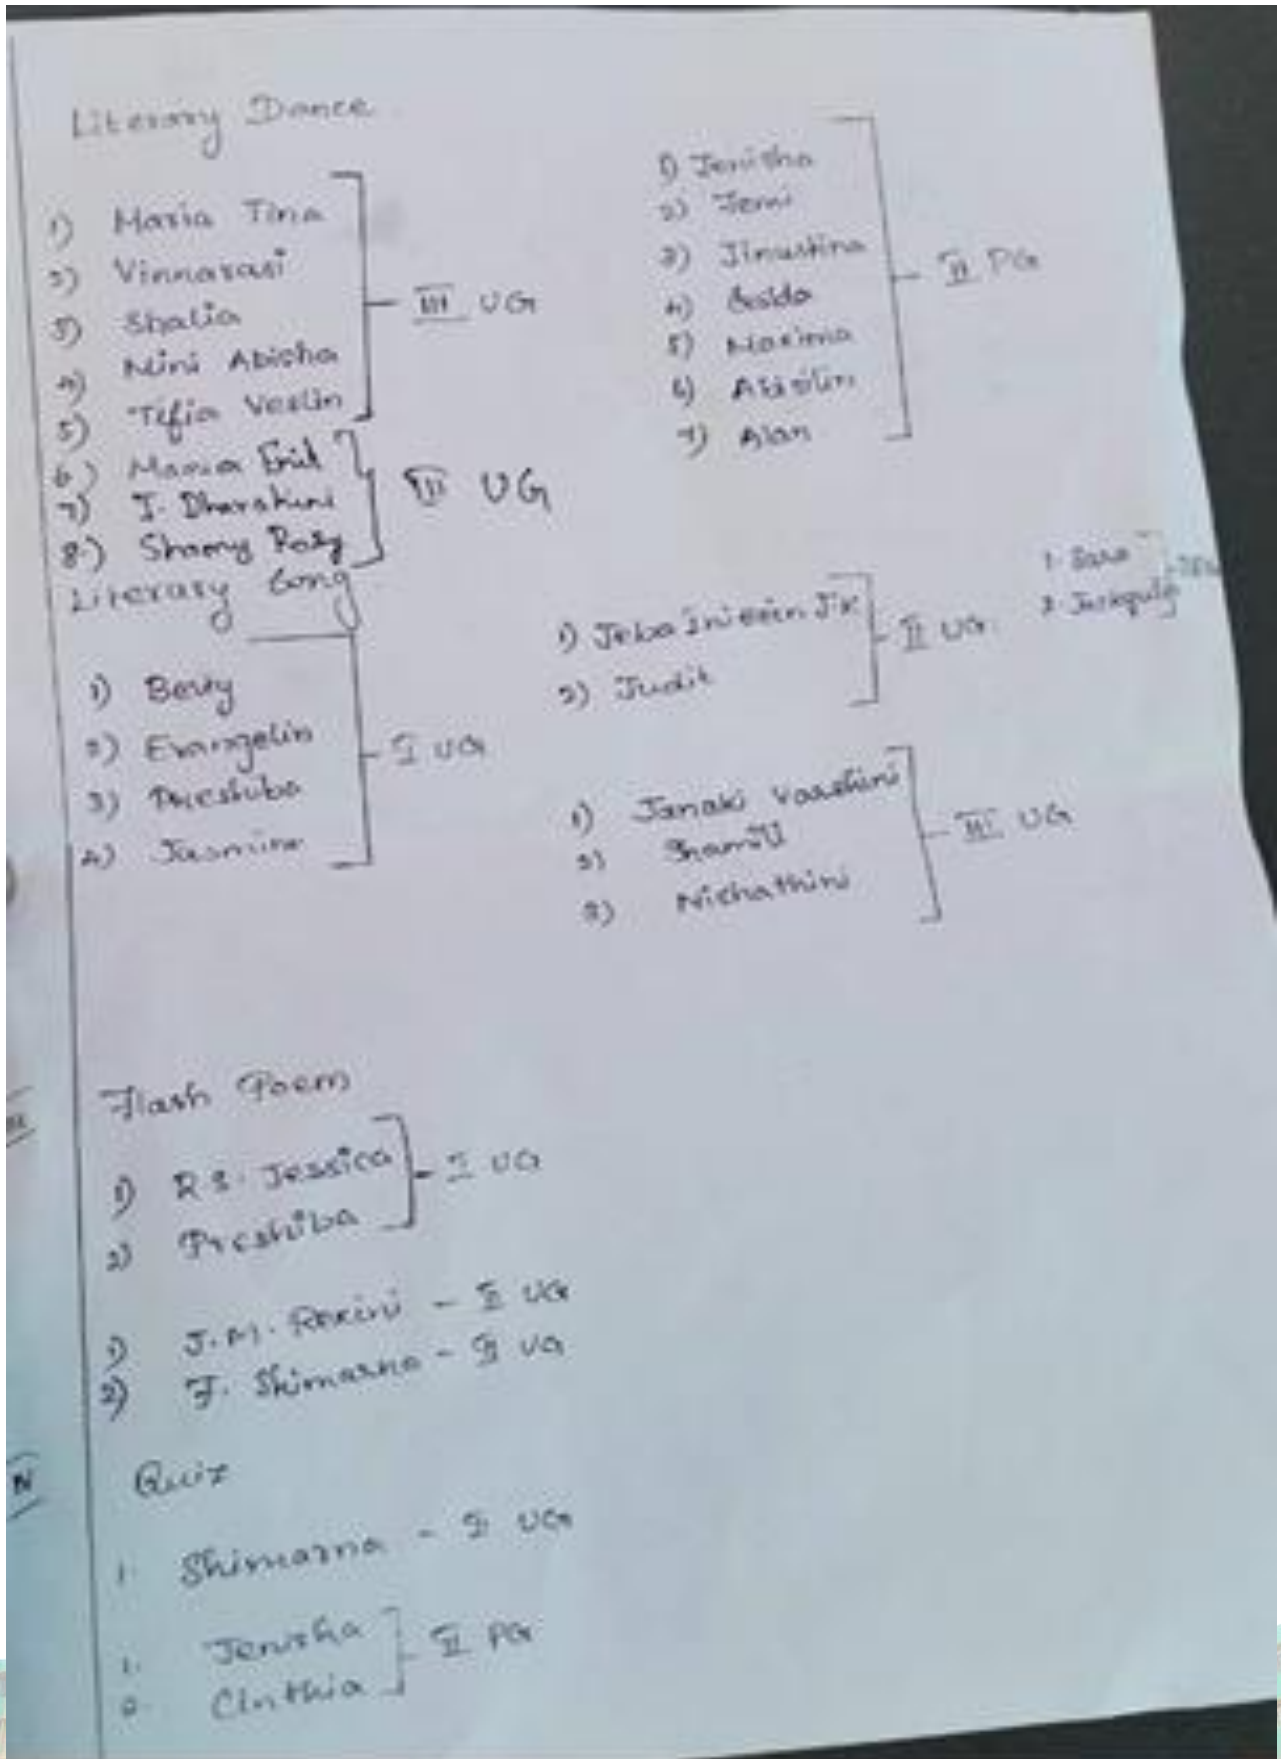 Literary Dance
1) Maria Tina
2) Vinnarasi
3) Shalia
4) Mini Abisha
5) Tifia Veslin
III UG
6) Maria
7) J. Dharshini
8) Shamy Rosy
III UG
1) Jenisha
2) Femi
3) Jinustina
4)
5)
6)
7) Alan
II PG
Literary Song
1) Berty
2) Evangelin
3) Preshiba
4) Jasmine
I UG
1) Jeba
2) Judit
II UG
1. Sara
2.
1) Janaki Varshini
2)
3) Nishathini
III UG
Flash Poem
1) R S. Jessica
2) Preshiba
I UG
1) J.M. Rexini - II UG
2) F. Shimarna - II UG
IV
Quiz
1. Shimarna - II UG
1. Jenisha
2. Cinthia
II PG